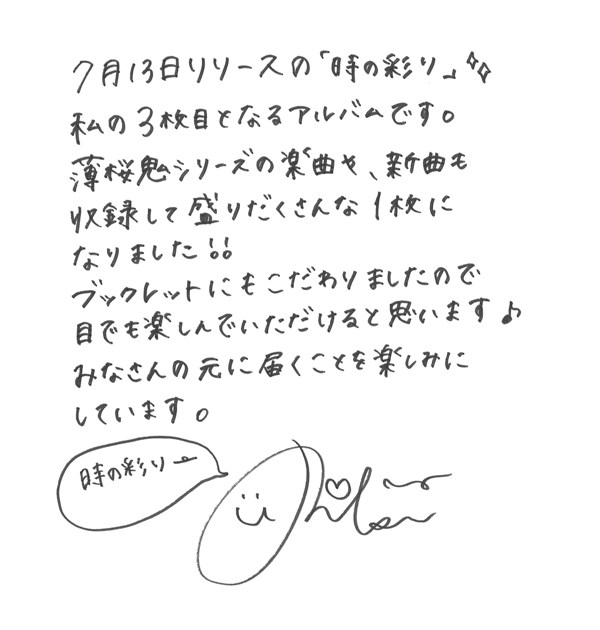 7月13日リリースの「時の彩り」
私の3枚目となるアルバムです。
薄桜鬼シリーズの楽曲や、新曲も
収録して盛りだくさんな1枚に
なりました!!
ブックレットにもこだわりましたので
目でも楽しんでいただけると思います♪
みなさんの元に届くことを楽しみに
しています。
時の彩りー